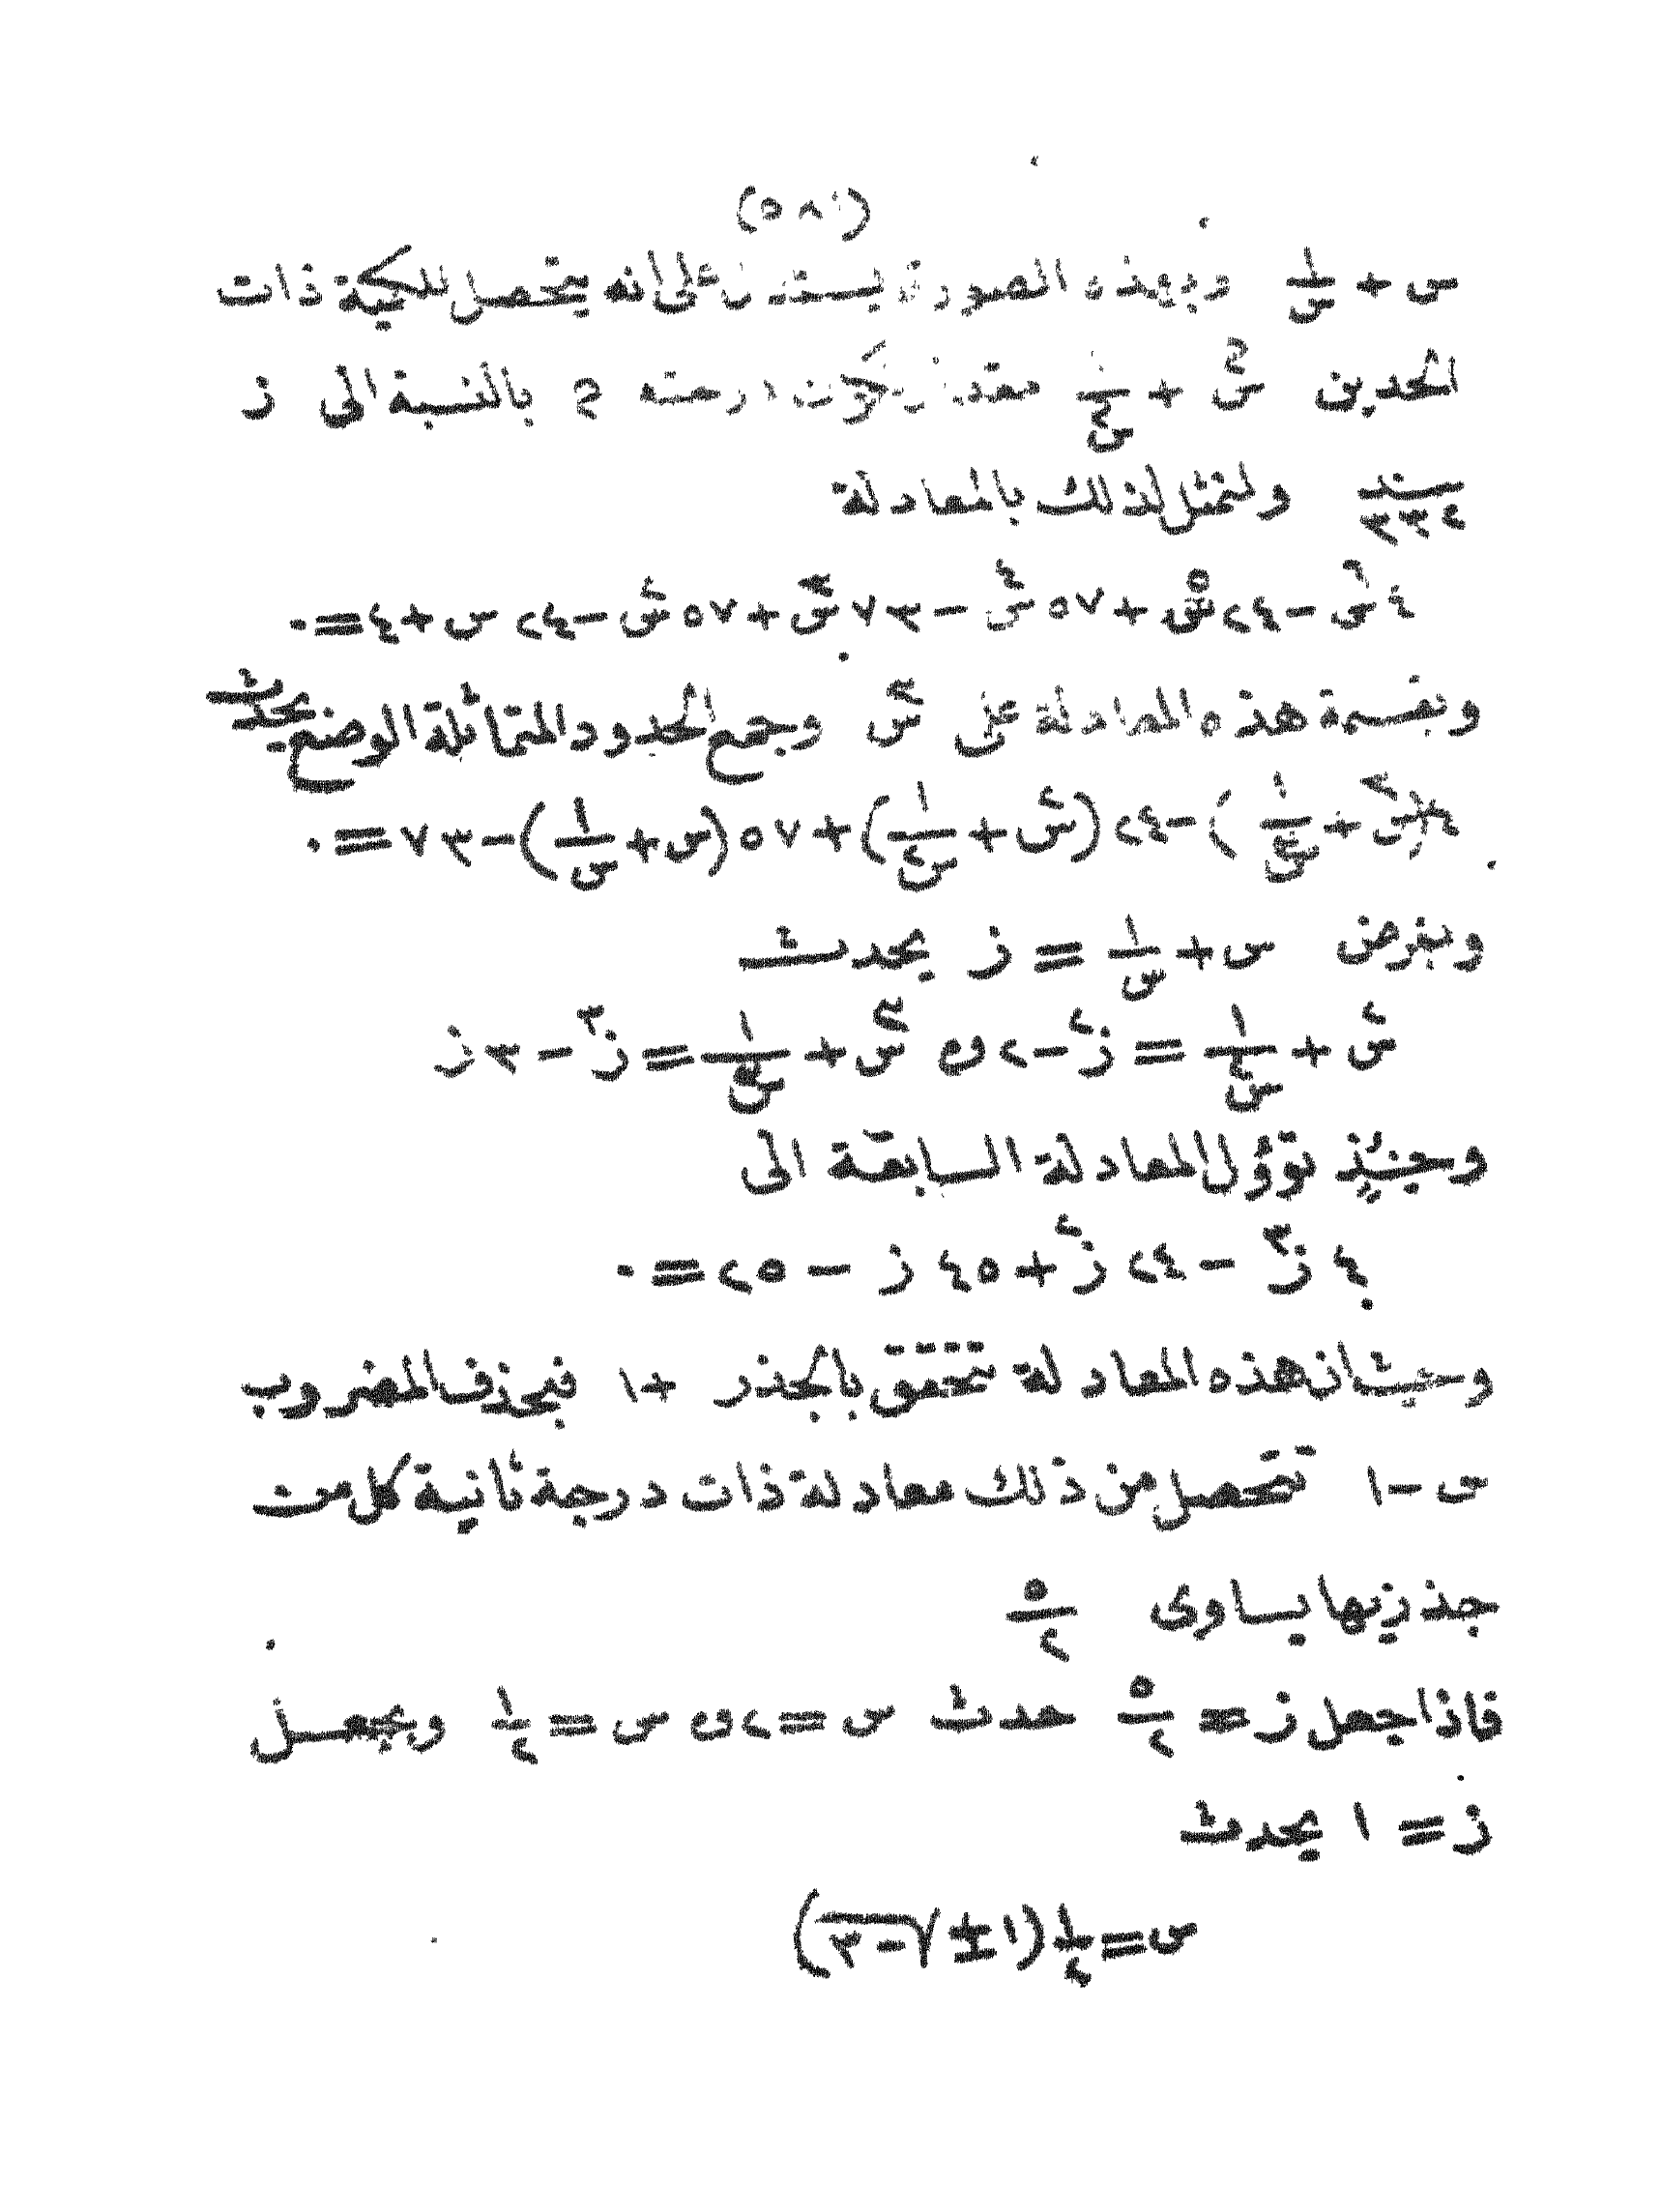 (٥٨٠)
س + ١/س وبهذه الصورة يستدل على انه يتحصل للكمية ذات
الحدين س^٢ + ١/س^٢ مقدار تكون درجته م بالنسبة الى ز
سند ٣٣٤ ولنمثل لذلك بالمعادلة
٤ س^٦ − ٢٤ س^٥ + ٥٧ س^٤ − ٧٣ س^٣ + ٥٧ س^٢ − ٢٤ س + ٤ = ٠
وبقسمة هذه المعادلة على س^٣ وجمع الحدود المتماثلة الوضع يحدث
٤(س^٣ + ١/س^٣) − ٢٤(س^٢ + ١/س^٢) + ٥٧(س + ١/س) − ٧٣ = ٠
وبفرض س + ١/س = ز يحدث
س^٢ + ١/س^٢ = ز^٢ − ٢ و س^٣ + ١/س^٣ = ز^٣ − ٣ ز
وحينئذ تؤول المعادلة السابقة الى
٤ ز^٣ − ٢٤ ز^٢ + ٤٥ ز − ٢٥ = ٠
وحيث ان هذه المعادلة تتحقق بالجذر + ١ فبحذف المضروب
س − ١ تتحصل من ذلك معادلة ذات درجة ثانية كل من
جذريها يساوى ٥/٢
فاذا جعل ز = ٥/٢ حدث س = ٢ و س = ١/٢ وبجعل
ز = ١ يحدث
س = ١/٢ (١ ± √−٣)